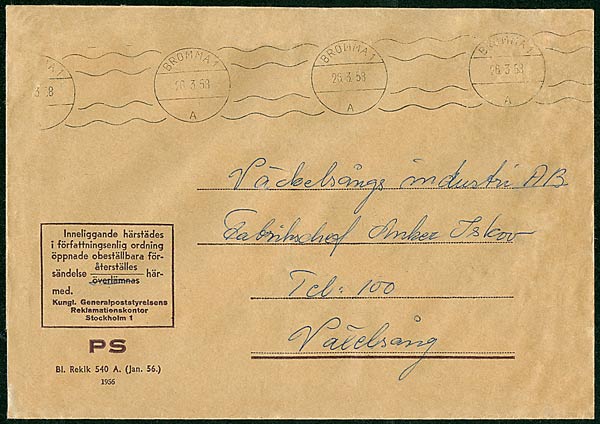 BROMMA 1 BROMMA 1 BROMMA 1 BROMMA 1
3.58 26.3.58 26.3.58 26.3.58
A A A
Väckelsångs industri AB
Fabrikschef Anker Iskov
Tel: 100
Väckelsång
Inneliggande härstädes
i författningsenlig ordning
öppnade obeställbara för-
återställes
sändelse överlämnas här-
med.
Kungl. Generalpoststyrelsens
Reklamationskontor
Stockholm 1
PS
Bl. Rekik 540 A. (Jan. 56.)
1956